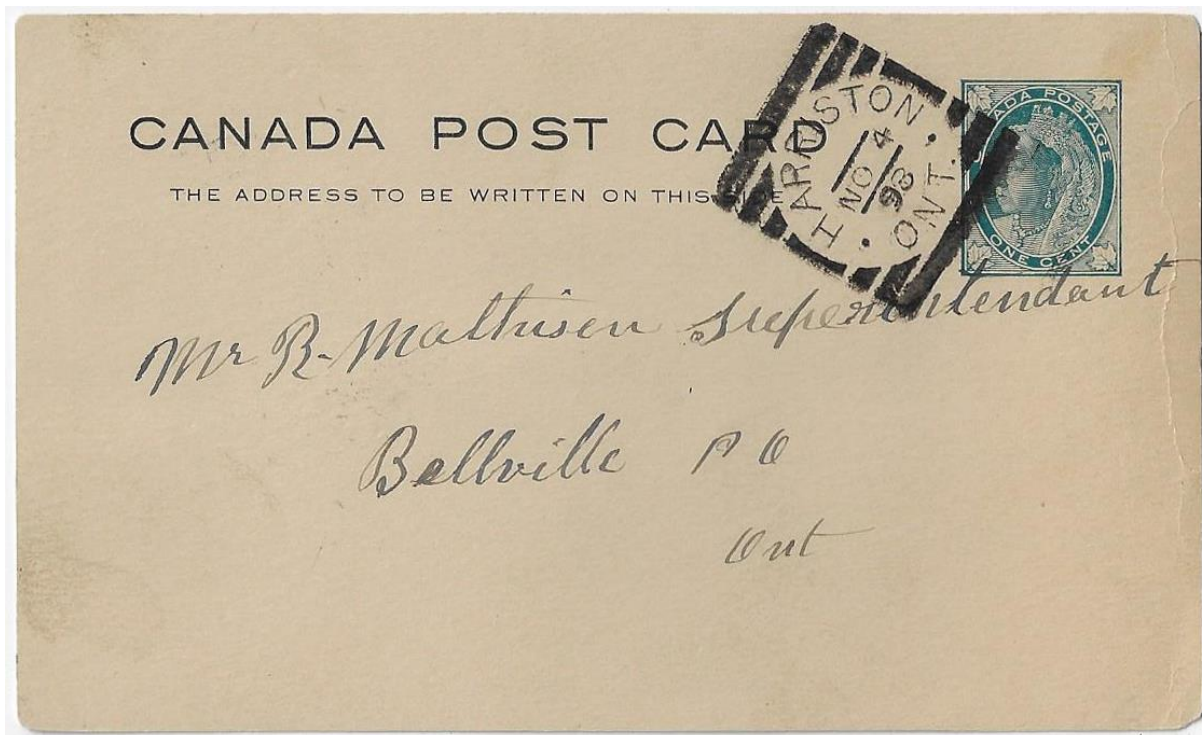 CANADA POST CARD
THE ADDRESS TO BE WRITTEN ON THIS SIDE
HARRISTON
NO 4
98
ONT.
CANADA POSTAGE
ONE CENT
Mr R. Mathisen Superintendant
Bellville P O
Ont